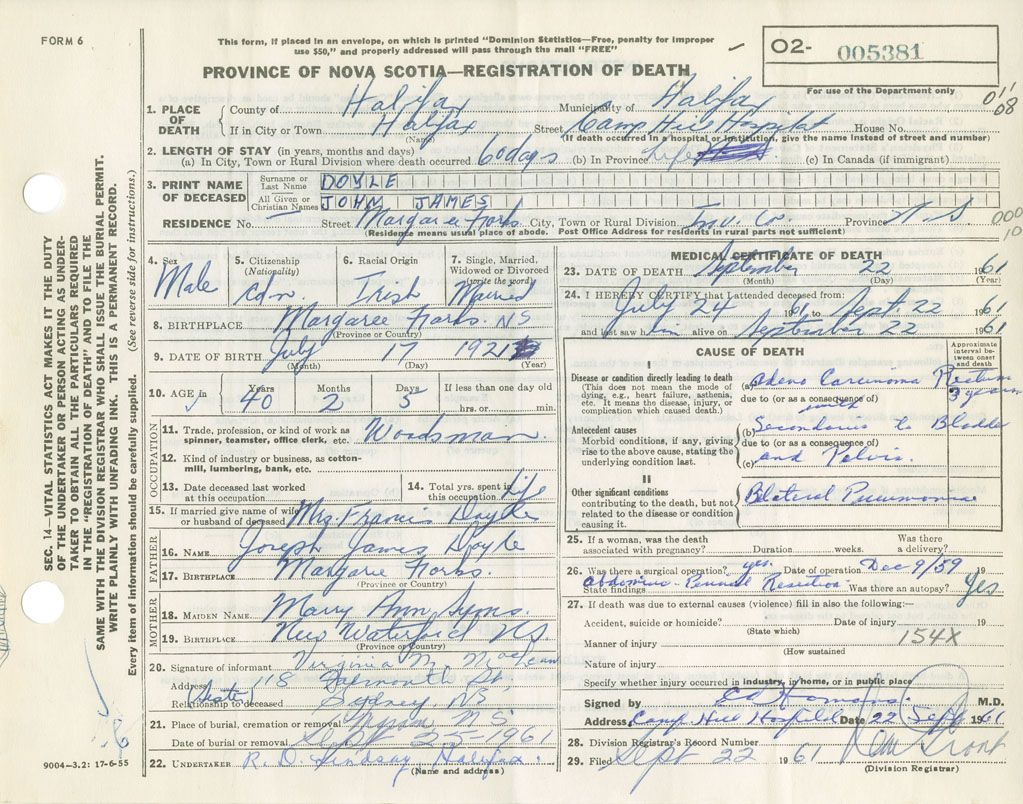 FORM 6
This form, if placed in an envelope, on which is printed "Dominion Statistics—Free, penalty for improper
use $50," and properly addressed will pass through the mail "FREE"
O2- 005381
PROVINCE OF NOVA SCOTIA—REGISTRATION OF DEATH
For use of the Department only
1. PLACE OF DEATH
County of Halifax Municipality of Halifax
If in City or Town Halifax Street Camp Hill Hospital House No.
(Name) (If death occurred in a hospital or institution, give the name instead of street and number)
2. LENGTH OF STAY (in years, months and days)
(a) In City, Town or Rural Division where death occurred 60 days (b) In Province Life (c) In Canada (if immigrant)
3. PRINT NAME OF DECEASED
Surname or Last Name DOYLE
All Given or Christian Names JOHN JAMES
RESIDENCE No. Street Margaree Forks City, Town or Rural Division Inv. Co. Province N S
(Residence means usual place of abode. Post Office Address for residents in rural parts not sufficient)
000
10
4. Sex Male
5. Citizenship (Nationality) Cdn
6. Racial Origin Irish
7. Single, Married, Widowed or Divorced (write the word) Married
8. BIRTHPLACE Margaree Forks. NS
(Province or Country)
9. DATE OF BIRTH July 17 1921
(Month) (Day) (Year)
10. AGE in Years 40 Months 2 Days 5 If less than one day old hrs. or min.
OCCUPATION
11. Trade, profession, or kind of work as spinner, teamster, office clerk, etc. Woodsman.
12. Kind of industry or business, as cotton-mill, lumbering, bank, etc.
13. Date deceased last worked at this occupation
14. Total yrs. spent in this occupation Life
15. If married give name of wife or husband of deceased Mrs. Francis Doyle
FATHER
16. NAME Joseph James Doyle
17. BIRTHPLACE Margarie Forks.
(Province or Country)
MOTHER
18. MAIDEN NAME Mary Ann Syms.
19. BIRTHPLACE New Waterford NS
(Province or Country)
20. Signature of informant Virginia M. MacLean
Address 118 Falmouth St,
Relationship to deceased (Sister) Sydney, NS,
21. Place of burial, cremation or removal N S
Date of burial or removal Sept 25-1961
22. UNDERTAKER R. D. Lindsay Halifax.
(Name and address)
9004—3.2: 17-6-55
MEDICAL CERTIFICATE OF DEATH
23. DATE OF DEATH September 22 1961
(Month) (Day) (Year)
24. I HEREBY CERTIFY that I attended deceased from:
July 24 1961 to Sept. 22 1961
and last saw him alive on September 22 1961
CAUSE OF DEATH
Approximate interval between onset and death
I
Disease or condition directly leading to death
(This does not mean the mode of dying, e.g., heart failure, asthenia, etc. It means the disease, injury, or complication which caused death.)
(a) Adeno Carcinoma Rectum 3 years
due to (or as a consequence of) with
Antecedent causes
Morbid conditions, if any, giving rise to the above cause, stating the underlying condition last.
(b) Secondaries to Bladder
due to (or as a consequence of)
(c) and Pelvis.
II
Other significant conditions
contributing to the death, but not related to the disease or condition causing it.
Bilateral Pneumonia
25. If a woman, was the death associated with pregnancy? Duration weeks. Was there a delivery?
26. Was there a surgical operation? yes. Date of operation Dec 9/59 19
State findings Abdomino-Perineal Resection Was there an autopsy? Yes
27. If death was due to external causes (violence) fill in also the following:—
Accident, suicide or homicide? Date of injury 19
(State which)
Manner of injury 154X
(How sustained
Nature of injury
Specify whether injury occurred in industry, in home, or in public place
Signed by M.D.
Address Camp Hill Hospital Date 22 Sept 1961
28. Division Registrar's Record Number
29. Filed Sept 22 1961
(Division Registrar)
SEC. 14—VITAL STATISTICS ACT MAKES IT THE DUTY
OF THE UNDERTAKER OR PERSON ACTING AS UNDER-
TAKER TO OBTAIN ALL THE PARTICULARS REQUIRED
IN THE "REGISTRATION OF DEATH" AND TO FILE THE
SAME WITH THE DIVISION REGISTRAR WHO SHALL ISSUE THE BURIAL PERMIT.
WRITE PLAINLY WITH UNFADING INK. THIS IS A PERMANENT RECORD.
Every item of information should be carefully supplied. (See reverse side for instructions.)